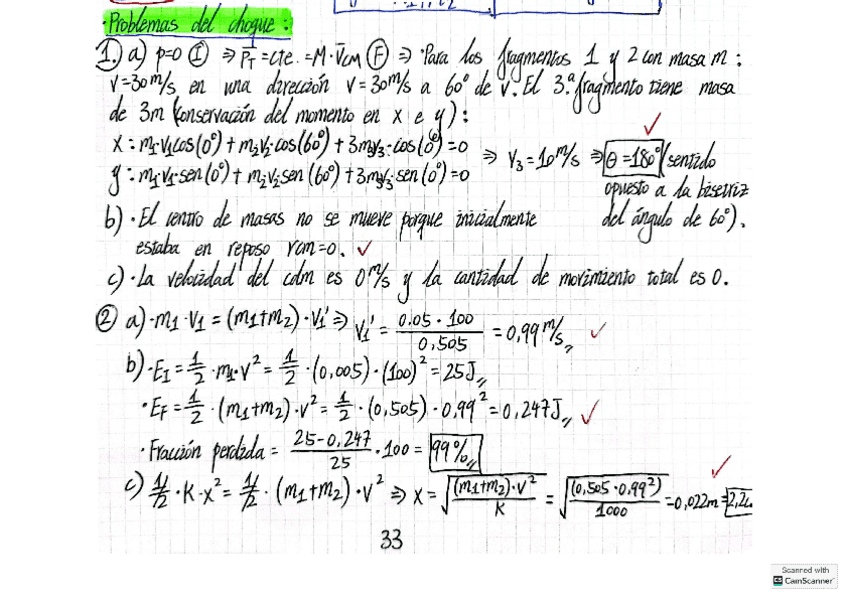 · Problemas del choque :
1. a) p=0 (I) ⇒ P_T = cte. = M · V_CM (F) ⇒ · Para los fragmentos 1 y 2 con masa m :
v=30m/s en una dirección v=30m/s a 60° de v. El 3.ᵃ fragmento tiene masa
de 3m (conservación del momento en x e y) :
x : m₁·v₁cos(0°) + m₂v₂·cos(60°) + 3m₃v₃·cos(0°) = 0
y : m₁·v₁·sen(0°) + m₂v₂sen(60°) + 3m₃v₃·sen(0°) = 0
⇒ v₃ = 10m/s ⇒ θ = 180° (sentido
opuesto a la bisetriz
del ángulo de 60°).
b) · El centro de masas no se mueve porque inicialmente
estaba en reposo rcm = 0.
c) · La velocidad del cdm es 0 m/s y la cantidad de movimiento total es 0.
2 a) · m₁ · v₁ = (m₁+m₂) · v₁' ⇒ v₁' = 0.05 · 100 / 0,505 = 0,99 m/s,,
b) · E_I = 1/2 · m₁·v² = 1/2 · (0,005) · (100)² = 25J,,
· E_F = 1/2 · (m₁+m₂) · v² = 1/2 · (0,505) · 0,99² = 0,247J,,
· Fracción perdida = 25-0,247 / 25 · 100 = 99%,,
c) 1/2 · K · x² = 1/2 · (m₁+m₂) · v² ⇒ x = √((m₁+m₂)·v² / K) = √((0,505 · 0,99²) / 1000) = 0,022m = 2,2
33
Scanned with
CS CamScanner